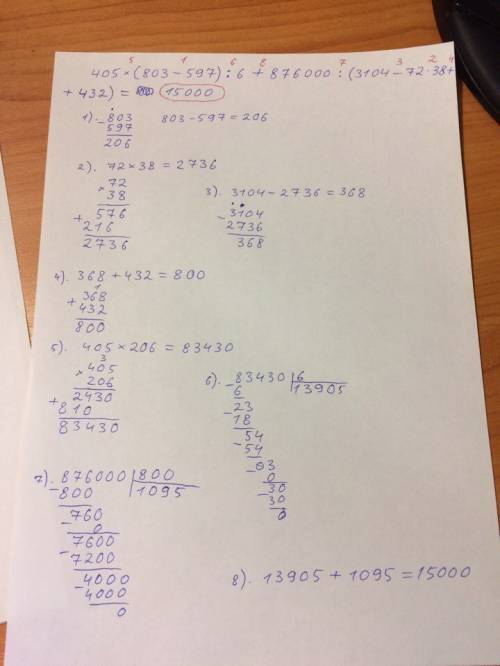 5 1 6 8 7 3 2 4
405×(803−597):6+876000:(3104−72·38+
+432)= 15000
1). −803 803−597=206
597
206
2). 72×38=2736
×72
38
+576
216
2736
3). 3104−2736=368
−3104
2736
368
4). 368+432=800
1
+368
432
800
5). 405×206=83430
3
×405
206
+2430
810
83430
6). −83430 6
6 13905
−23
18
−54
54
−03
0
−30
30
0
7). −876000 800
800 1095
−760
0
−7600
7200
−4000
4000
0
8). 13905+1095=15000